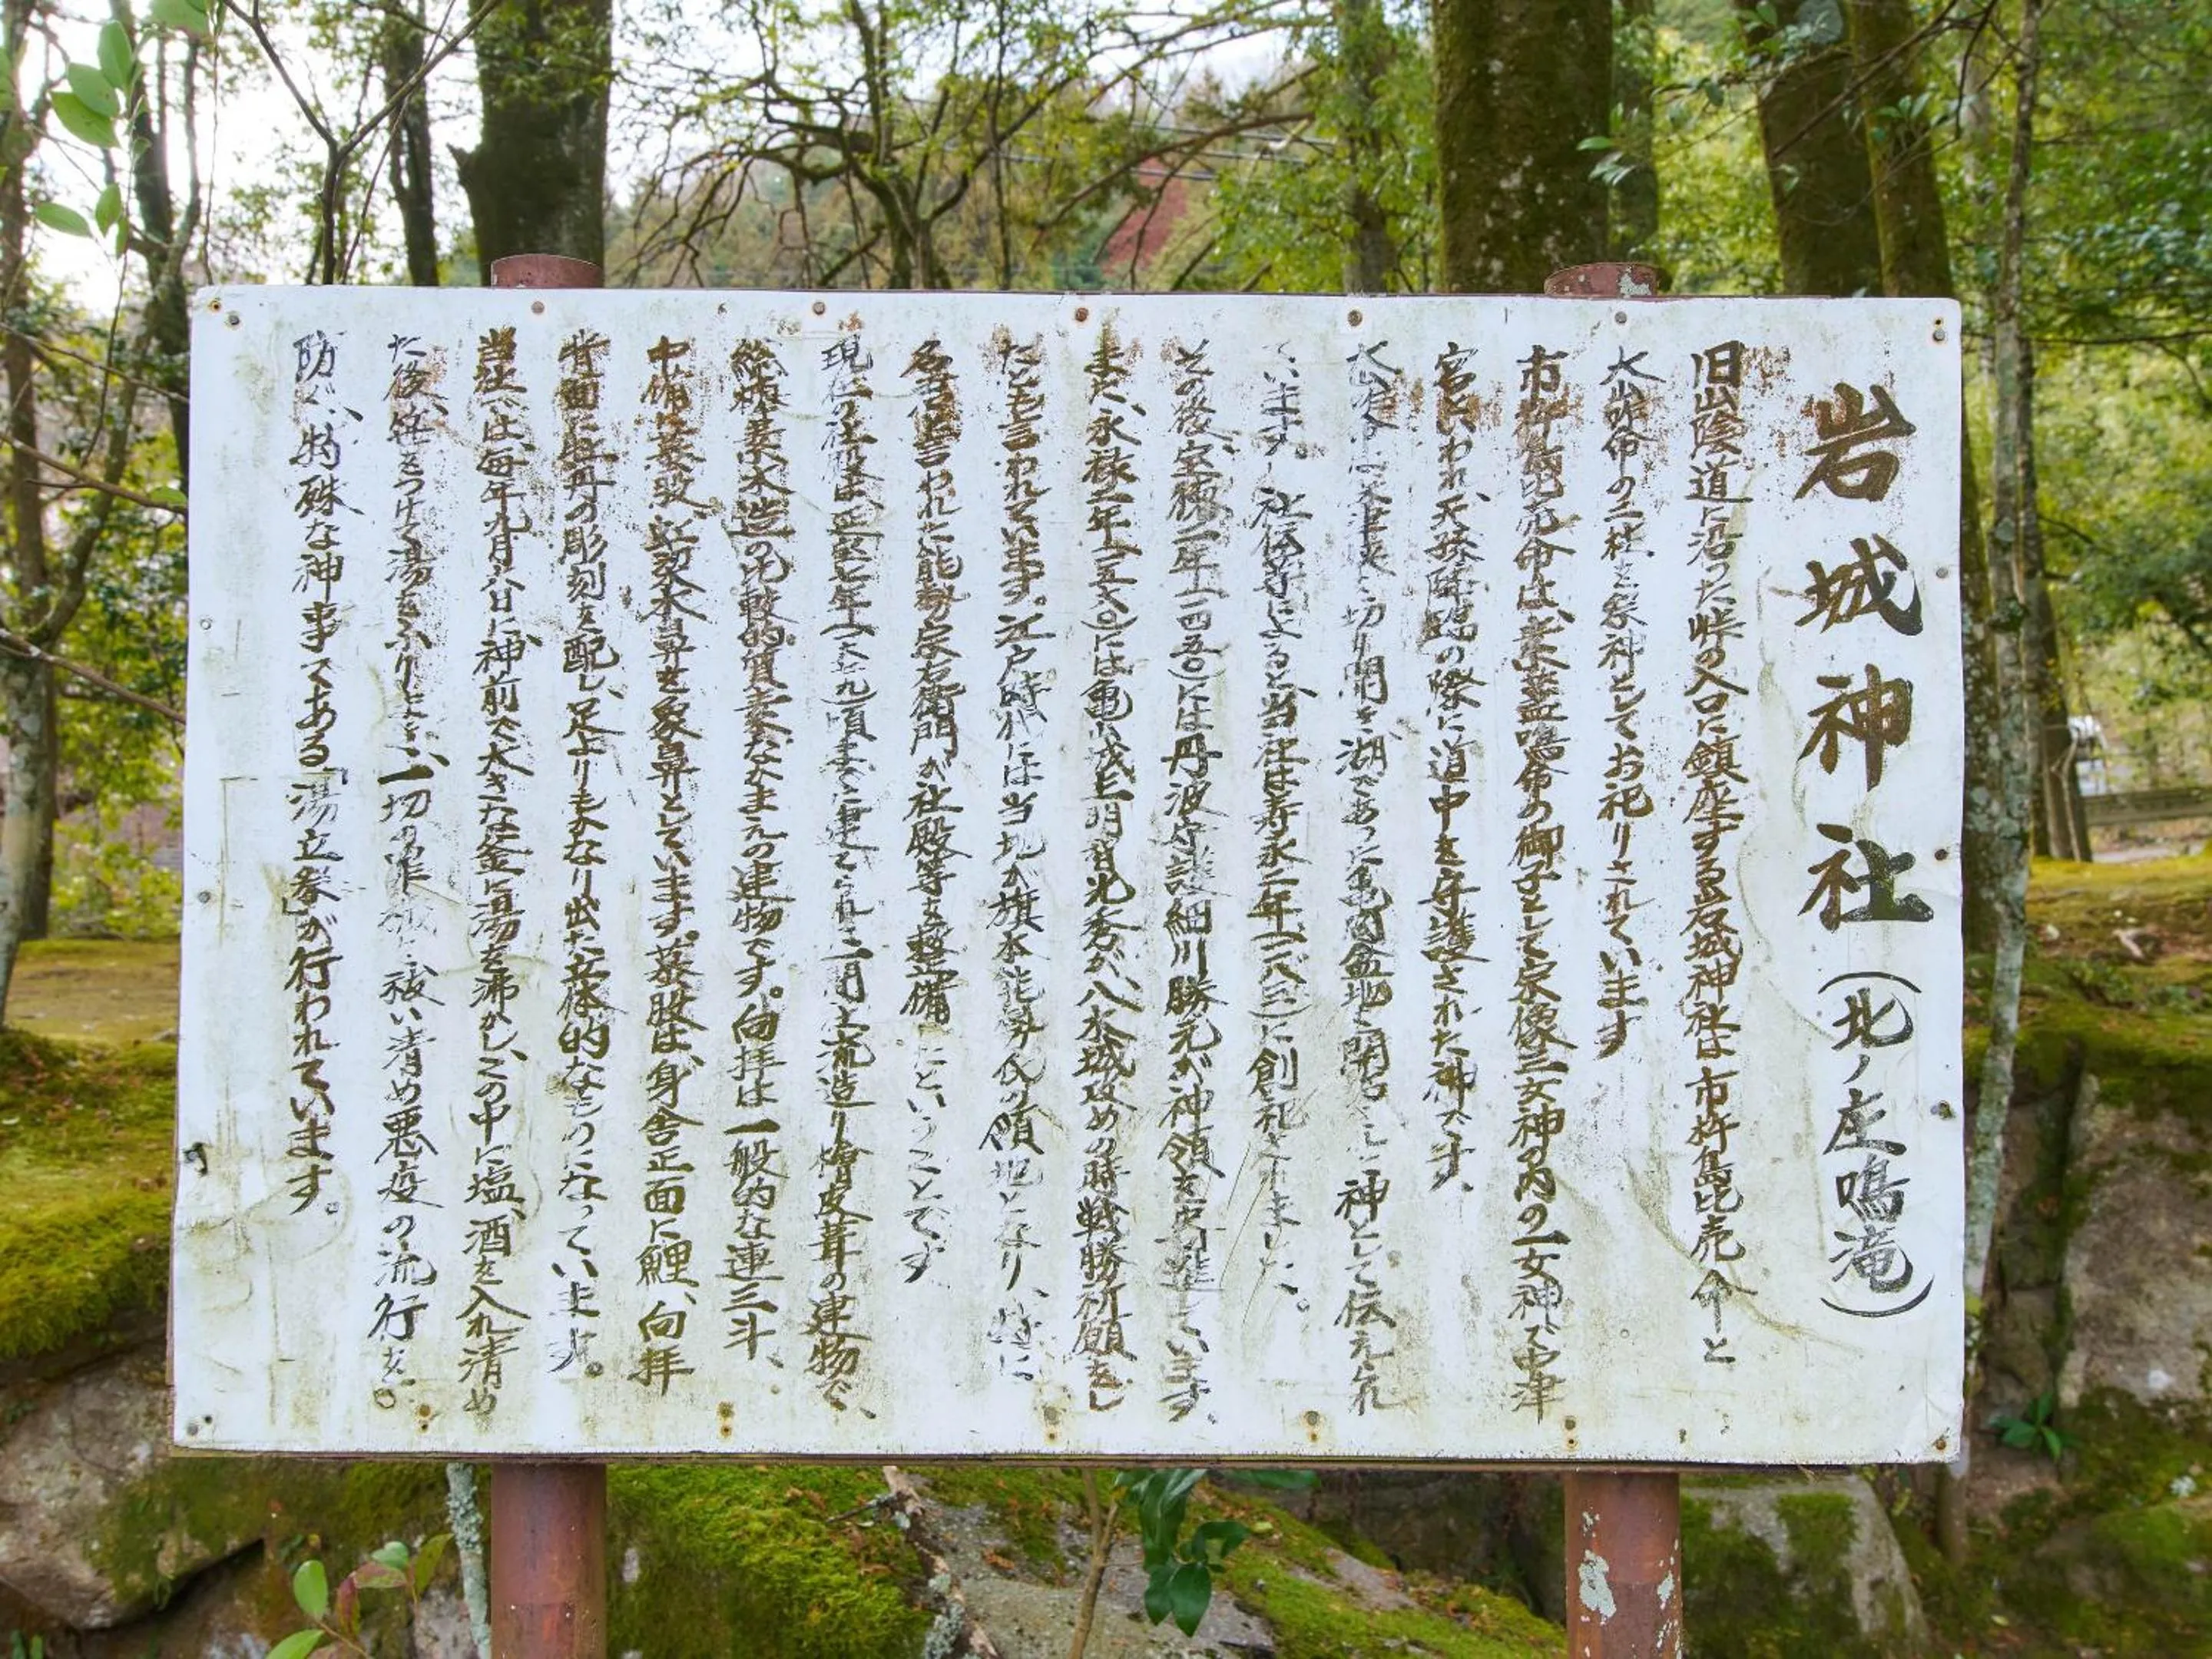 岩城神社(北ノ庄鳴滝)
旧山陰道に沿った峠の入口に鎮座する岩城神社は市杵島比売命と
大山咋命の二柱を祭神としてお祀りされています
市杵島比売命は、素盞嗚命の御子として宗像三女神の内の一女神で中津
宮といわれ、天孫降臨の際に道中を守護された神です。
大山咋命は 切り開き湖であった亀岡盆地を開拓した神として伝えられ
ています。社伝等によると当社は寿永二年(一一八三)に創祀されました。
その後、宝徳二年(一四五〇)には丹波守護細川勝元が神領を寄進しています。
また、永禄 年(一五七〇)には亀山城主明智光秀が八木城攻めの時戦勝祈願をし
たとも言われています。江戸時代には当地が旗本能勢氏の領地となり、特に
名君と言われた能勢 右衛門が社殿等を整備したということです
現在の社殿は正 七年 頃までに建てられた二間社流造り檜皮葺の建物で、
総 素木造の比較的質素なかまえの建物です。向拝は一般的な連三斗、
中備に蟇股、 木鼻を象鼻としています。蟇股は、身舎正面に鯉、向拝
背面に牡丹の彫刻を配し、足よりもかなり出た立体的なものになっています。
当社では、毎年九月 日に神前で大きな釜に湯を沸かし、この中に塩、酒を入れ清め
た後、笹をつけて湯をふりまき、一切の罪 祓い清め悪疫の流行を。
防ぐ、特殊な神事である「湯立 」が行われています。